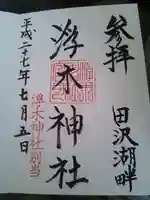 参拝
田沢湖畔
浮木神社
平成二十七年七月五日
浮木神社別当